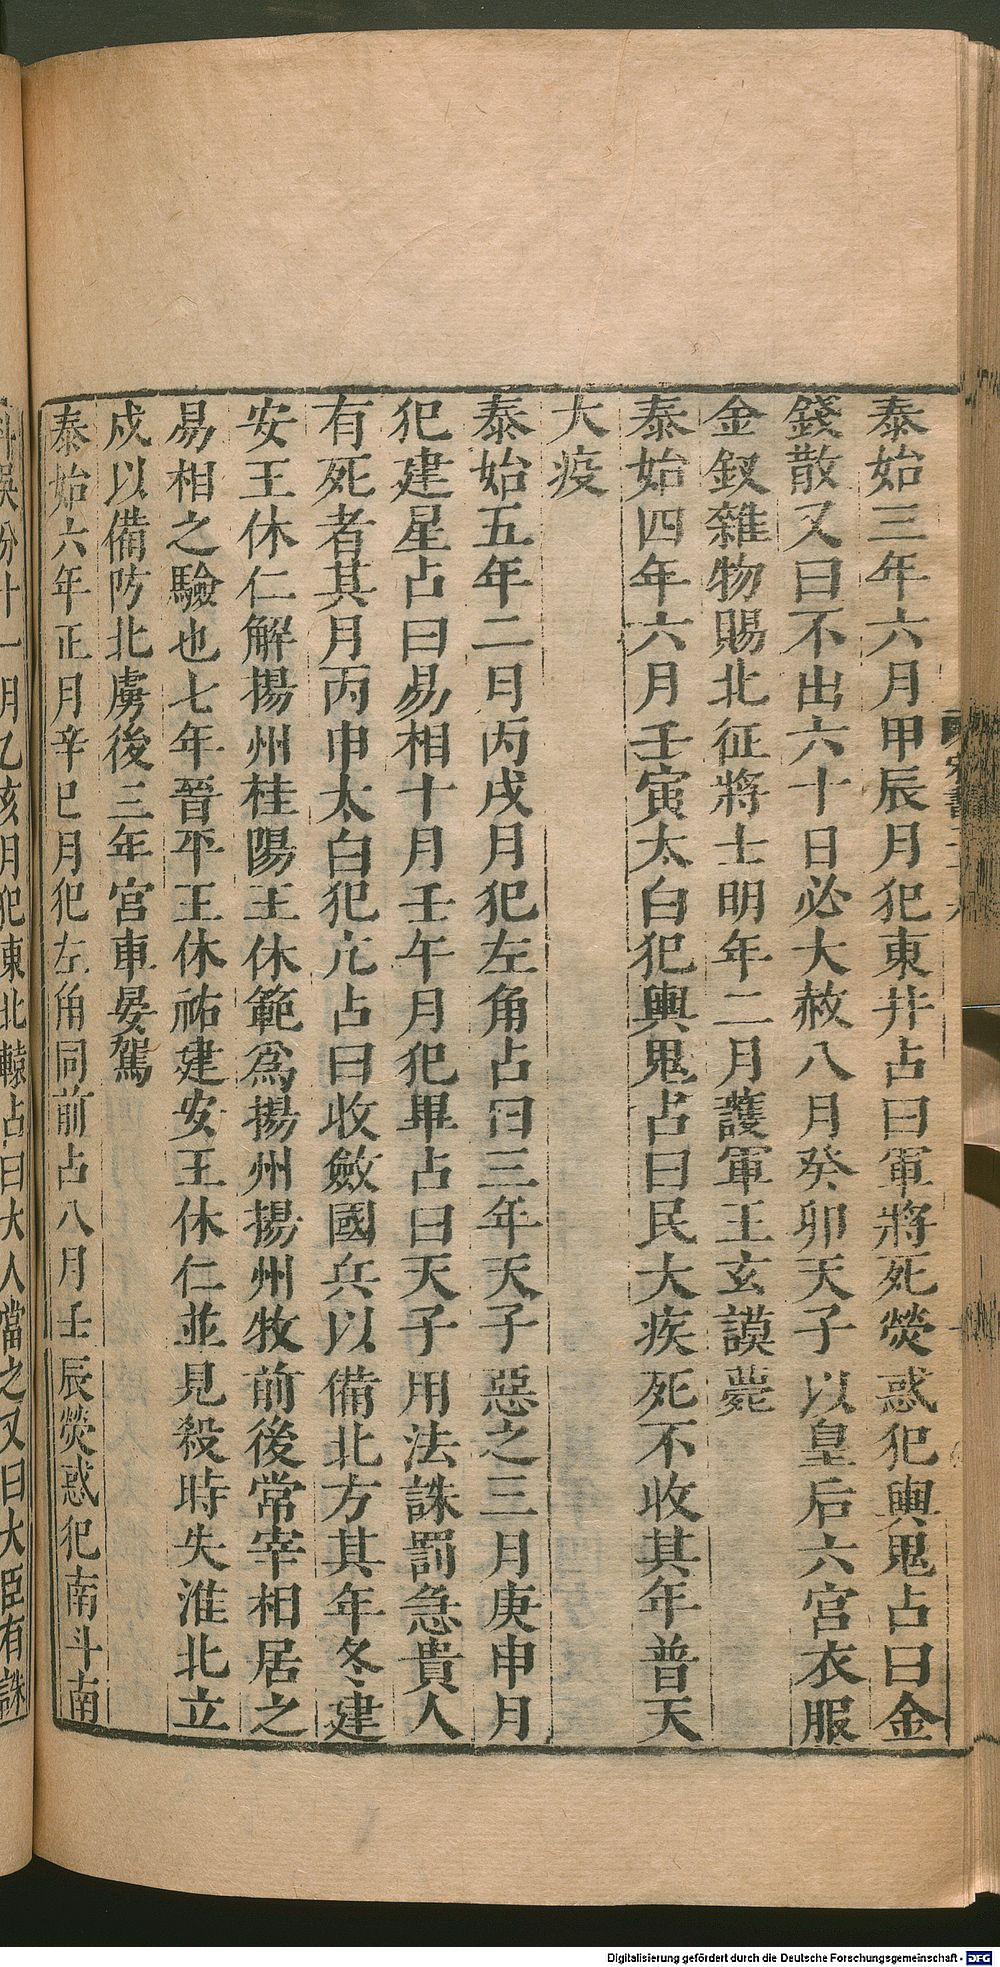 泰始三年六月甲辰月犯東井占曰軍將死熒惑犯輿鬼占曰金
錢散又曰不出六十日必大赦八月癸卯天子以皇后六宮衣服
金釵雜物賜北征將士明年二月護軍王玄謨薨
泰始四年六月壬寅太白犯輿鬼占曰民大疾死不收其年普天
大疫
泰始五年二月丙戌月犯左角占曰三年天子惡之三月庚申月
犯建星占曰易相十月壬午月犯畢占曰天子用法誅罰急貴人
有死者其月丙申太白犯亢占曰收斂國兵以備北方其年冬建
安王休仁解揚州桂陽王休範爲揚州揚州牧前後常宰相居之
易相之驗也七年晉平王休祐建安王休仁並見殺時失淮北立
戍以備防北虜後三年宮車晏駕
泰始六年正月辛巳月犯左角同前占八月壬辰熒惑犯南斗南
斗吳分十一月乙亥月犯東北轅占曰大人當之又曰大臣有誅
Digitalisierung gefördert durch die Deutsche Forschungsgemeinschaft - DFG